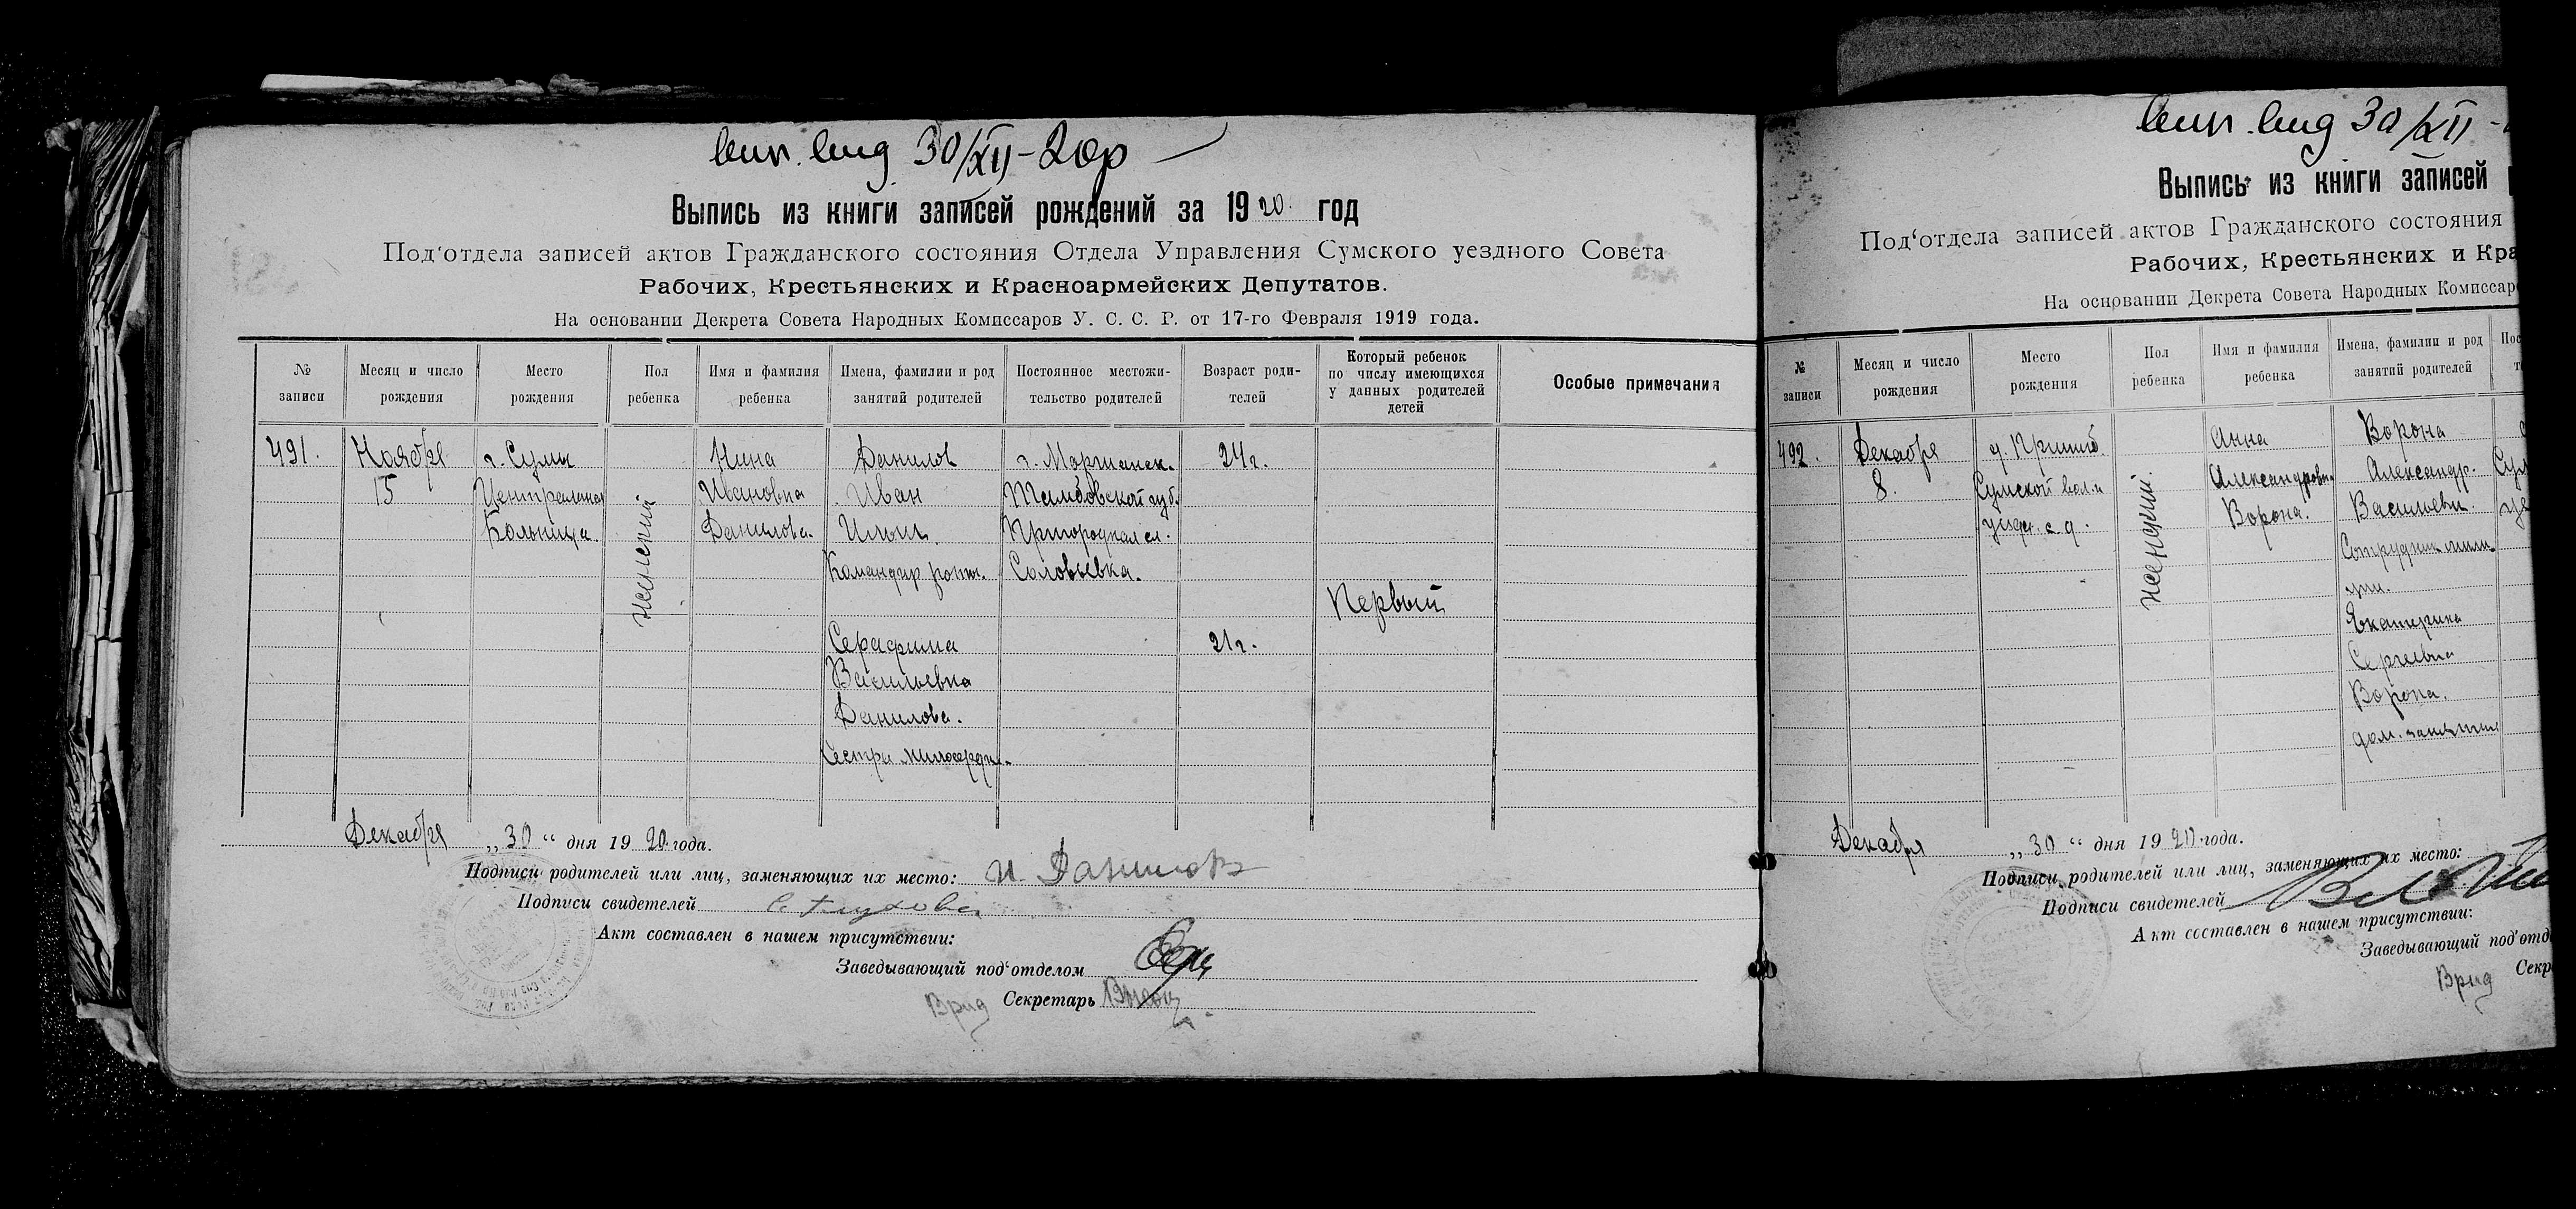 вип. вид 30/XII-20р
Выпись из книги записей рождений за 1920 год
Под‘отдела записей актов Гражданского состояния Отдела Управления Сумского уездного Совета
Рабочих, Крестьянских и Красноармейских Депутатов.
На основании Декрета Совета Народных Комиссаров У. С. С. Р. от 17-го Февраля 1919 года.
№ записи
Месяц и число рождения
Место рождения
Пол ребенка
Имя и фамилия ребенка
Имена, фамилии и род занятий родителей
Постоянное местожи-тельство родителей
Возраст роди-телей
Который ребенок по числу имеющихся у данных родителей детей
Особые примечания
491. Ноября г. Сумы Нина Данилов г. Моршанск. 24 г.
15 Центральная Ивановна Иван Тамбовской губ.
Больница. женский Данилова. Ильич. Пригородная сл.
Командир роты. Соловьевка.
Первый
Серафима 21 г.
Васильевна
Данилова.
Сестра милосердия.
Декабря „30“ дня 1920 года.
Подписи родителей или лиц, заменяющих их место: И. Данилов
Подписи свидетелей
Акт составлен в нашем присутствии:
Заведывающий под‘отделом
Врид Секретарь
вип. вид 30/XII-
Выпись из книги записей
Под‘отдела записей актов Гражданского состояния
Рабочих, Крестьянских и Кра
На основании Декрета Совета Народных Комиссар
№ записи
Месяц и число рождения
Место рождения
Пол ребенка
Имя и фамилия ребенка
Имена, фамилии и род занятий родителей
492. Декабря Анна Ворона
8. Сумской вол. и Александровна Александр.
уезда женский. Ворона. Васильевич.
Сотрудник мили
ции.
Екатерина
Сергеевна
Ворона.
дом. занятия
Декабря „30“ дня 1920 года.
Подписи родителей или лиц, заменяющих их место:
Подписи свидетелей
Акт составлен в нашем присутствии:
Заведывающий под‘отд
Врид Секр